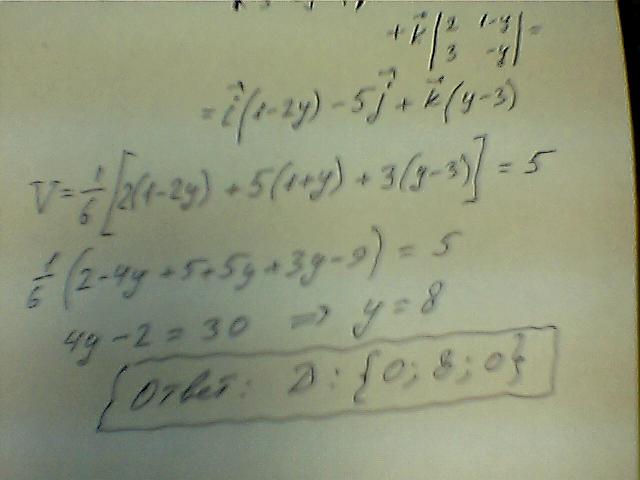 + k⃗ |2 1-y| =
|3 -y|
= i⃗(1-2y) - 5j⃗ + k⃗(y-3)
V = 1/6 [2(1-2y) + 5(1+y) + 3(y-3)] = 5
1/6 (2-4y+5+5y+3y-9) = 5
4y - 2 = 30 ⇒ y = 8
Ответ: D: {0; 8; 0}